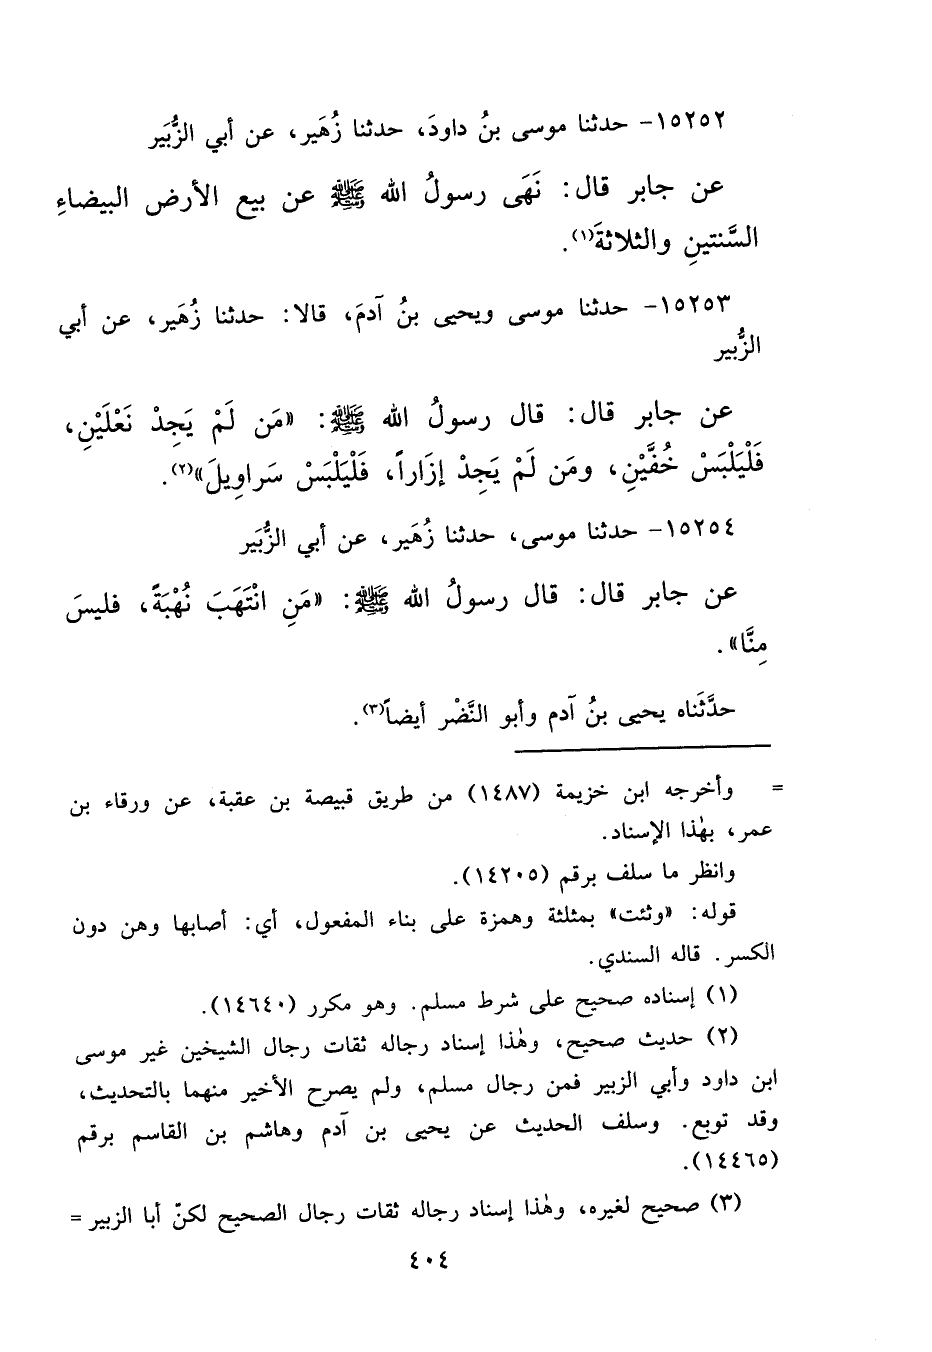 ١٥٢٥٢- حدثنا موسى بنُ داودَ، حدثنا زُهَير، عن أبي الزُّبَير
عن جابر قال: نَهَى رسولُ الله ﷺ عن بيع الأرض البيضاءِ
السَّنتينِ والثلاثةَ(١).
١٥٢٥٣- حدثنا موسى ويحيى بنُ آدمَ، قالا: حدثنا زُهَير، عن أبي
الزُّبير
عن جابر قال: قال رسولُ الله ﷺ: «مَن لَمْ يَجِدْ نَعْلَيْنِ،
فَلْيَلْبَسْ خُفَّيْنِ، ومَن لَمْ يَجِدْ إزَاراً، فَلْيَلْبَسْ سَراوِيلَ»(٢).
١٥٢٥٤- حدثنا موسى، حدثنا زُهَير، عن أبي الزُّبَير
عن جابر قال: قال رسولُ الله ﷺ: «مَنِ انْتَهَبَ نُهْبَةً، فليسَ
مِنَّا».
حدَّثَناه يحيى بنُ آدم وأبو النَّضْر أيضاً(٣).
= وأخرجه ابن خزيمة (١٤٨٧) من طريق قبيصة بن عقبة، عن ورقاء بن
عمر، بهٰذا الإسناد.
وانظر ما سلف برقم (١٤٢٠٥).
قوله: «وثئت» بمثلثة وهمزة على بناء المفعول، أي: أصابها وهن دون
الكسر. قاله السندي.
(١) إسناده صحيح على شرط مسلم. وهو مكرر (١٤٦٤٠).
(٢) حديث صحيح، وهٰذا إسناد رجاله ثقات رجال الشيخين غير موسى
ابن داود وأبي الزبير فمن رجال مسلم، ولم يصرح الأخير منهما بالتحديث،
وقد توبع. وسلف الحديث عن يحيى بن آدم وهاشم بن القاسم برقم
(١٤٤٦٥).
(٣) صحيح لغيره، وهٰذا إسناد رجاله ثقات رجال الصحيح لكنّ أبا الزبير =
٤٠٤